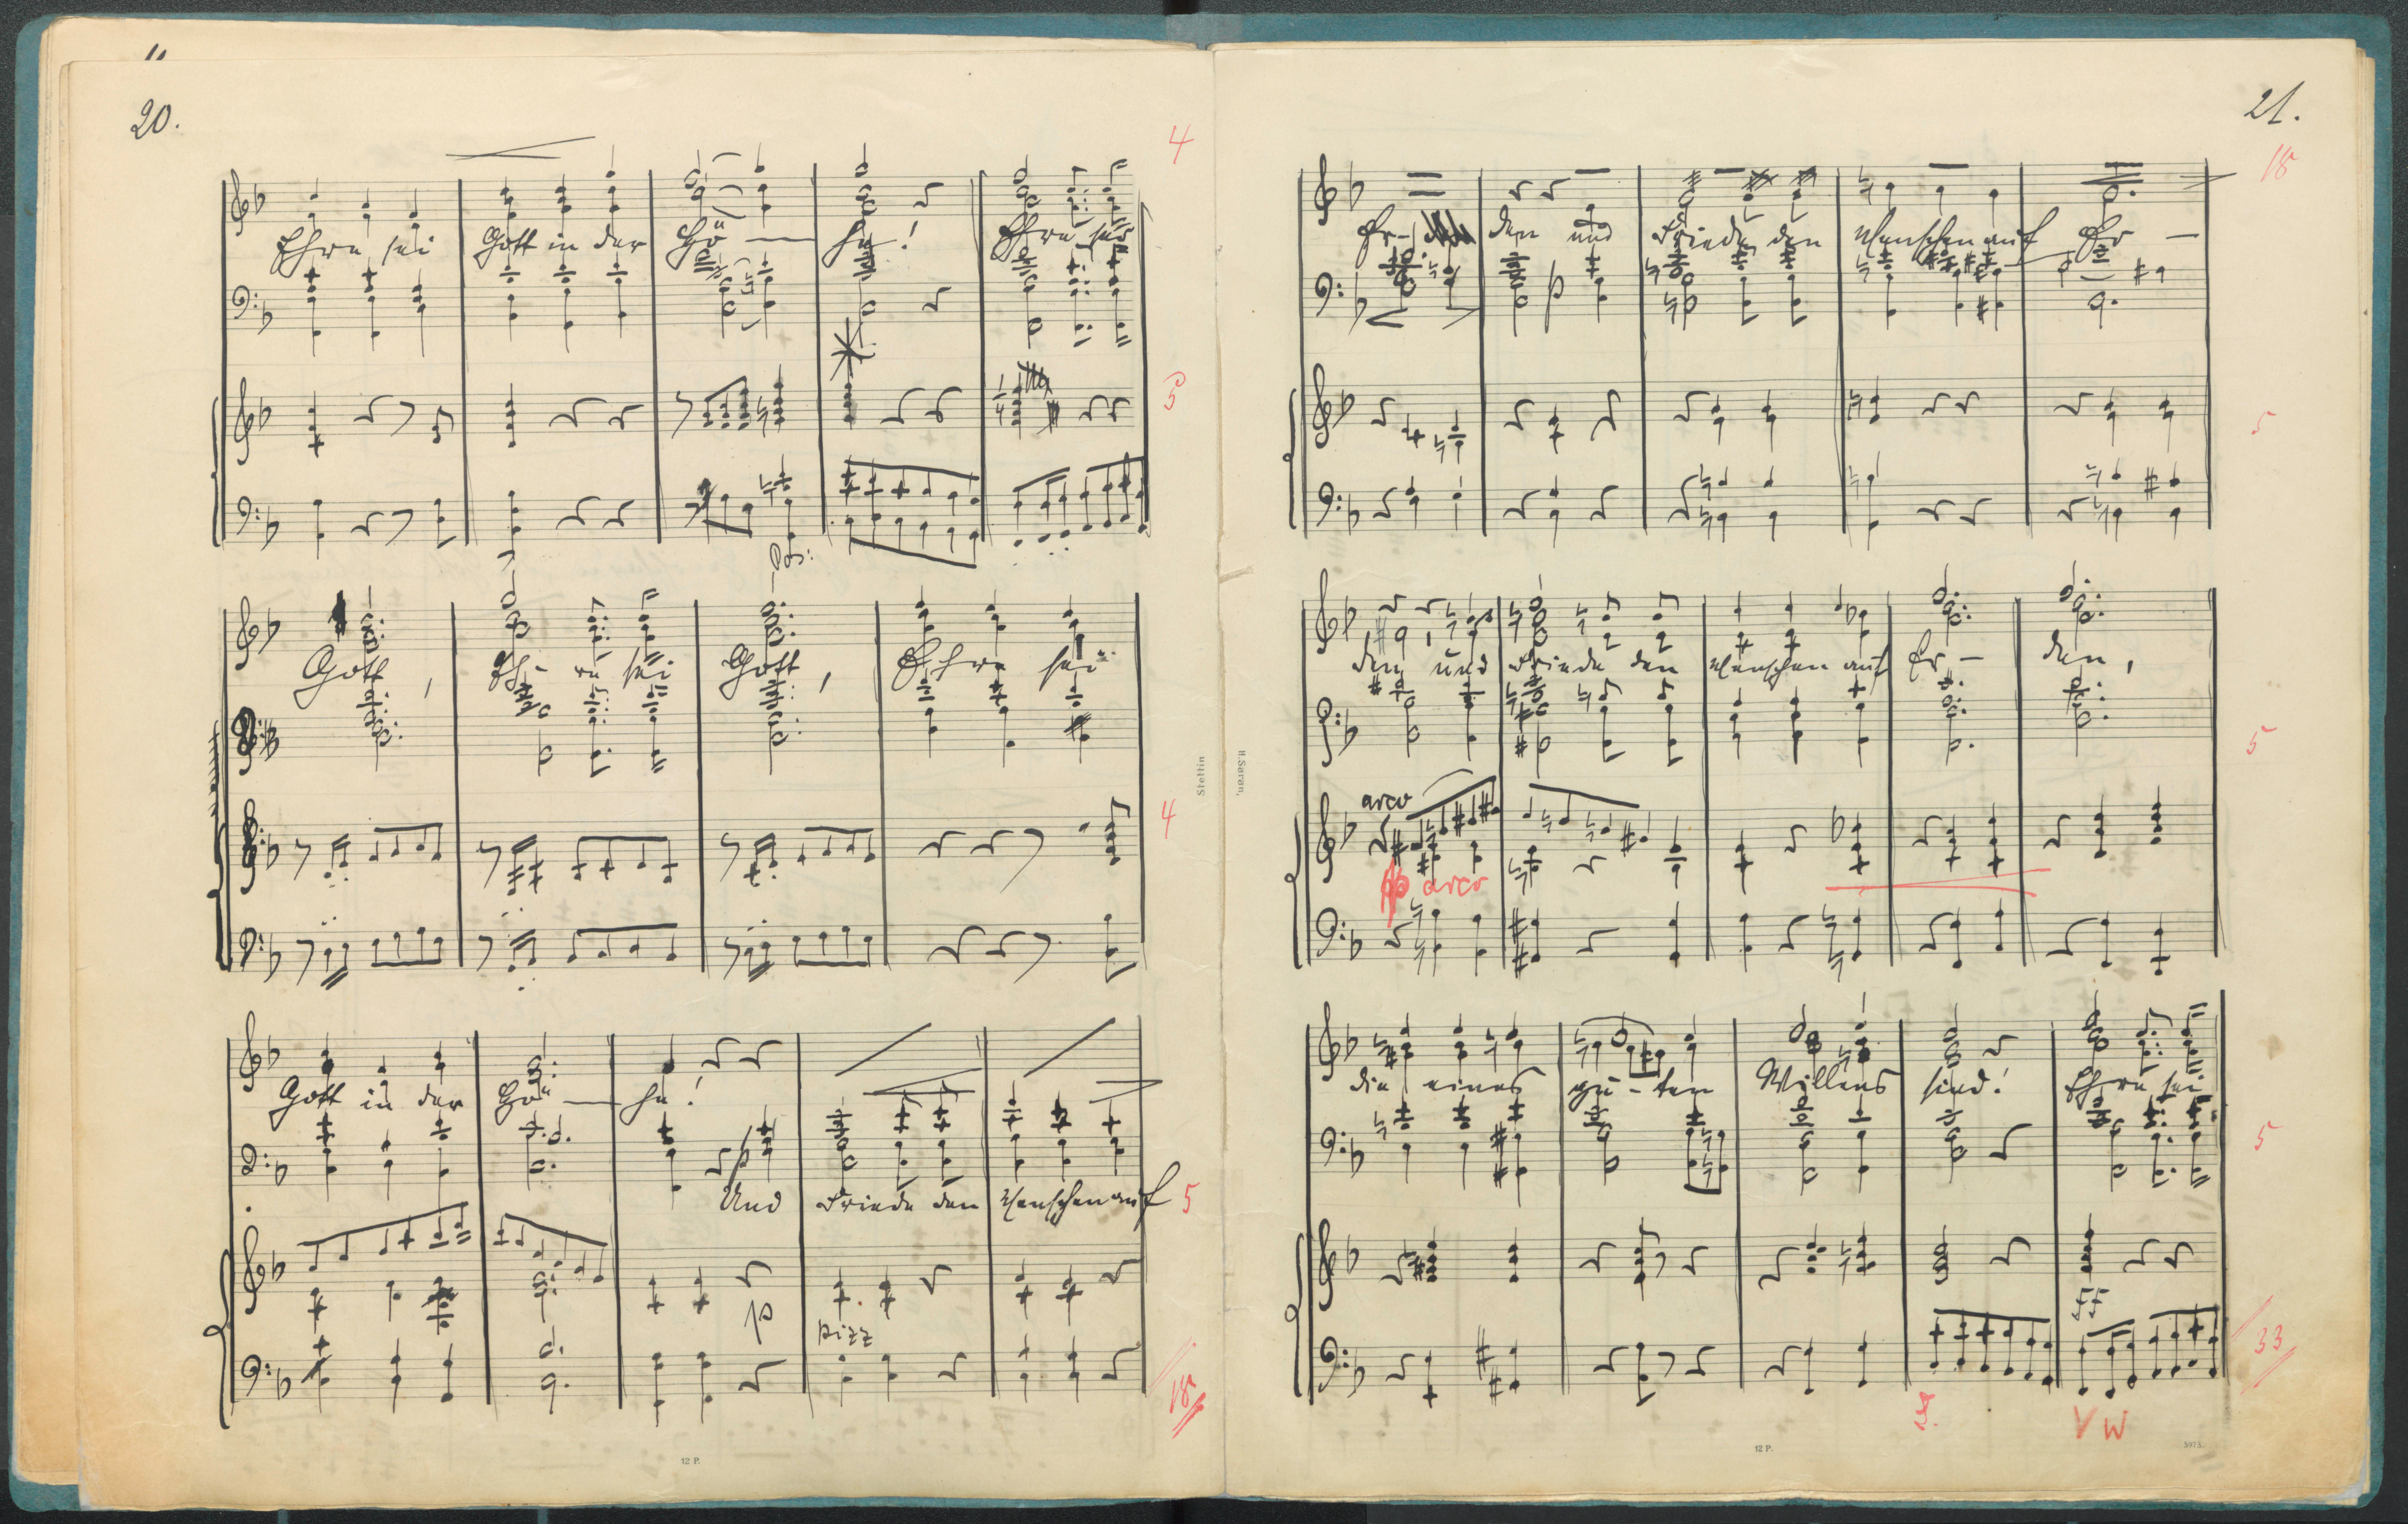 20.
4
Ehre sei Gott in der Hö — he! Ehre sei
5
Pos:
Gott, Eh- re sei Gott, Ehre sei
4
Gott in der Hö — he!
Und Friede den Menschen auf
5
p
pizz
18
12 P.
Stettin
H. Saran,
21.
18
Er- den und Friede den Menschen auf Er —
5
den und Friede den Menschen auf Er — den,
5
arco
arco
die eines gu - ten Willens sind! Ehre sei
5
FF
33
V W
12 P.
5973.